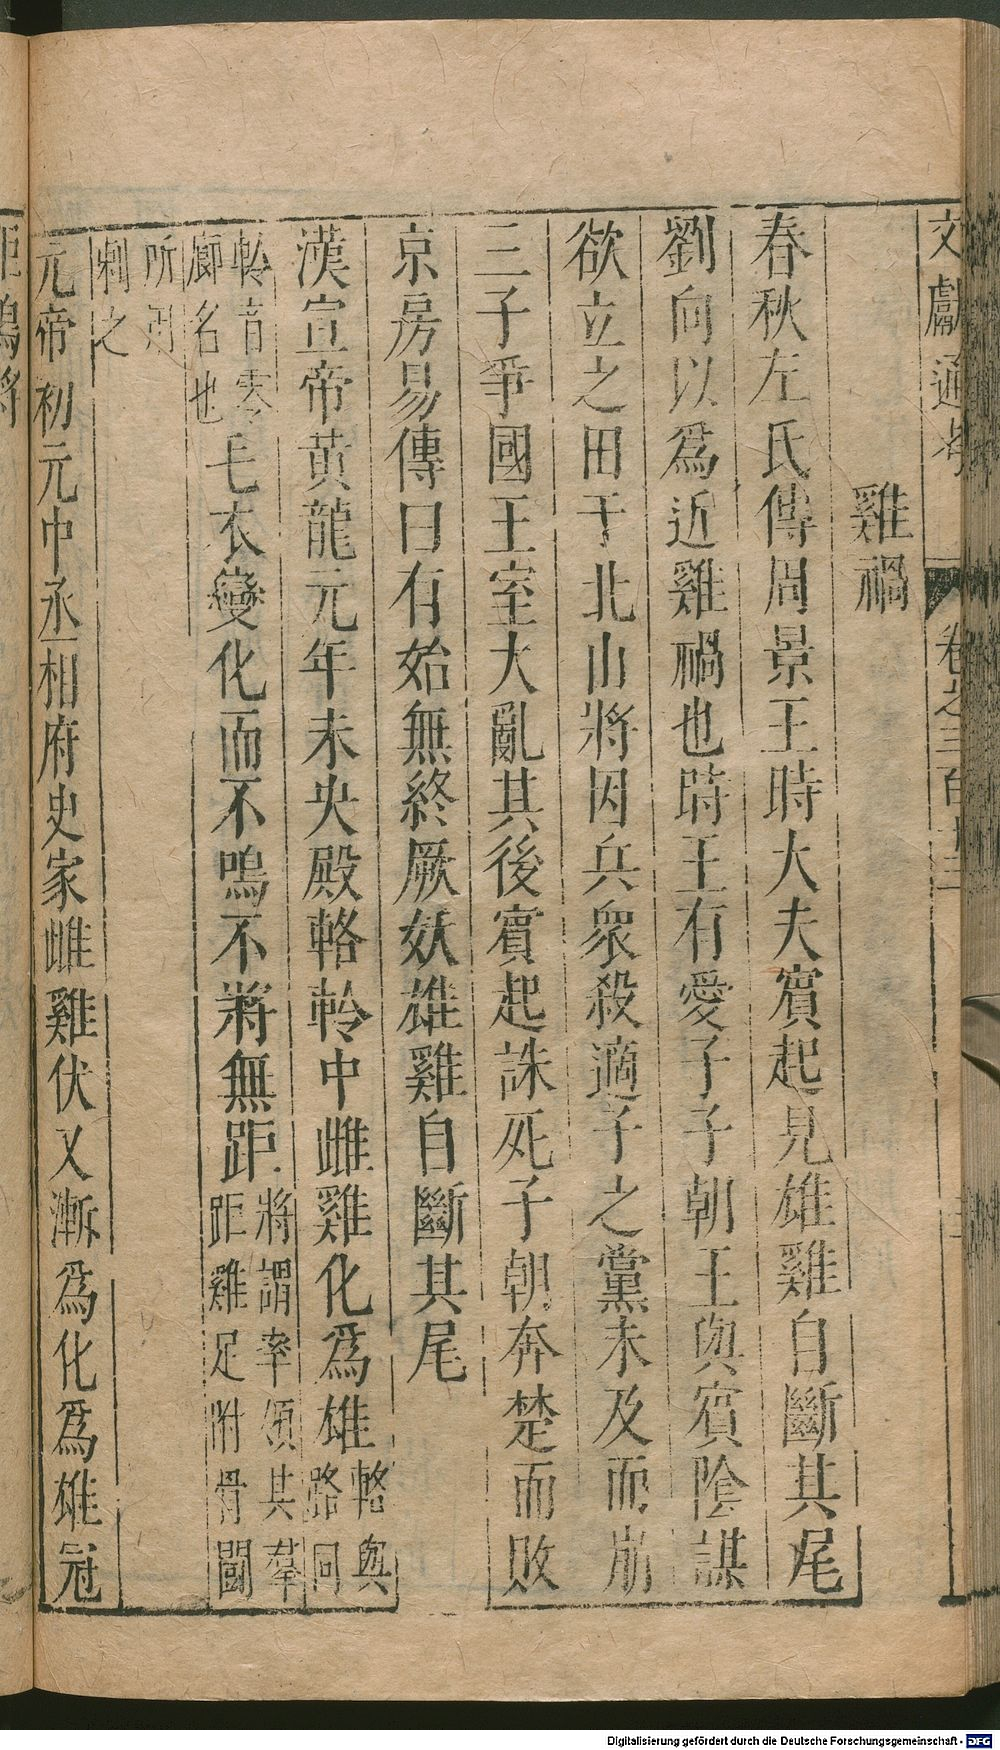 文獻通考 卷之三百十二
雞禍
春秋左氏傳周景王時大夫賓起見雄雞自斷其尾
劉向以爲近雞禍也時王有愛子子朝王與賓陰謀
欲立之田于北山將因兵衆殺適子之黨未及而崩
三子爭國王室大亂其後賓起誅死子朝奔楚而敗
京房易傳曰有始無終厥妖雄雞自斷其尾
漢宣帝黃龍元年未央殿輅軨中雌雞化爲雄輅與路同
軨音零廊名也毛衣變化而不鳴不將無距將謂率領其羣距雞足附骨鬬
所刺之
元帝初元中丞相府史家雌雞伏又漸爲化爲雄冠
距鳴將
Digitalisierung gefördert durch die Deutsche Forschungsgemeinschaft - DFG